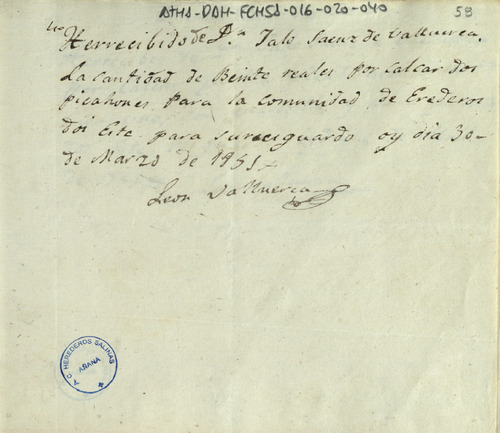 ATHA-DAH-FCHSA-016-020-040
59
Herrecibido de Dn. Talo Saenz de Valluerca.
La cantidad de Beinte reales por calcar dos
picahones para la comunidad de Erederos
doi Este para suresguardo oy dia 30
de Marzo de 1851
Leon Valluerca
Y. C. HEREDEROS SALINAS
AÑANA